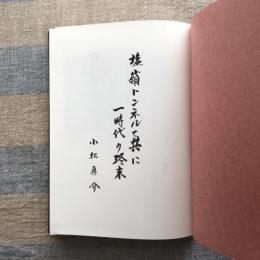 塩嶺トンネルと共に
一時代の終末
小松真人